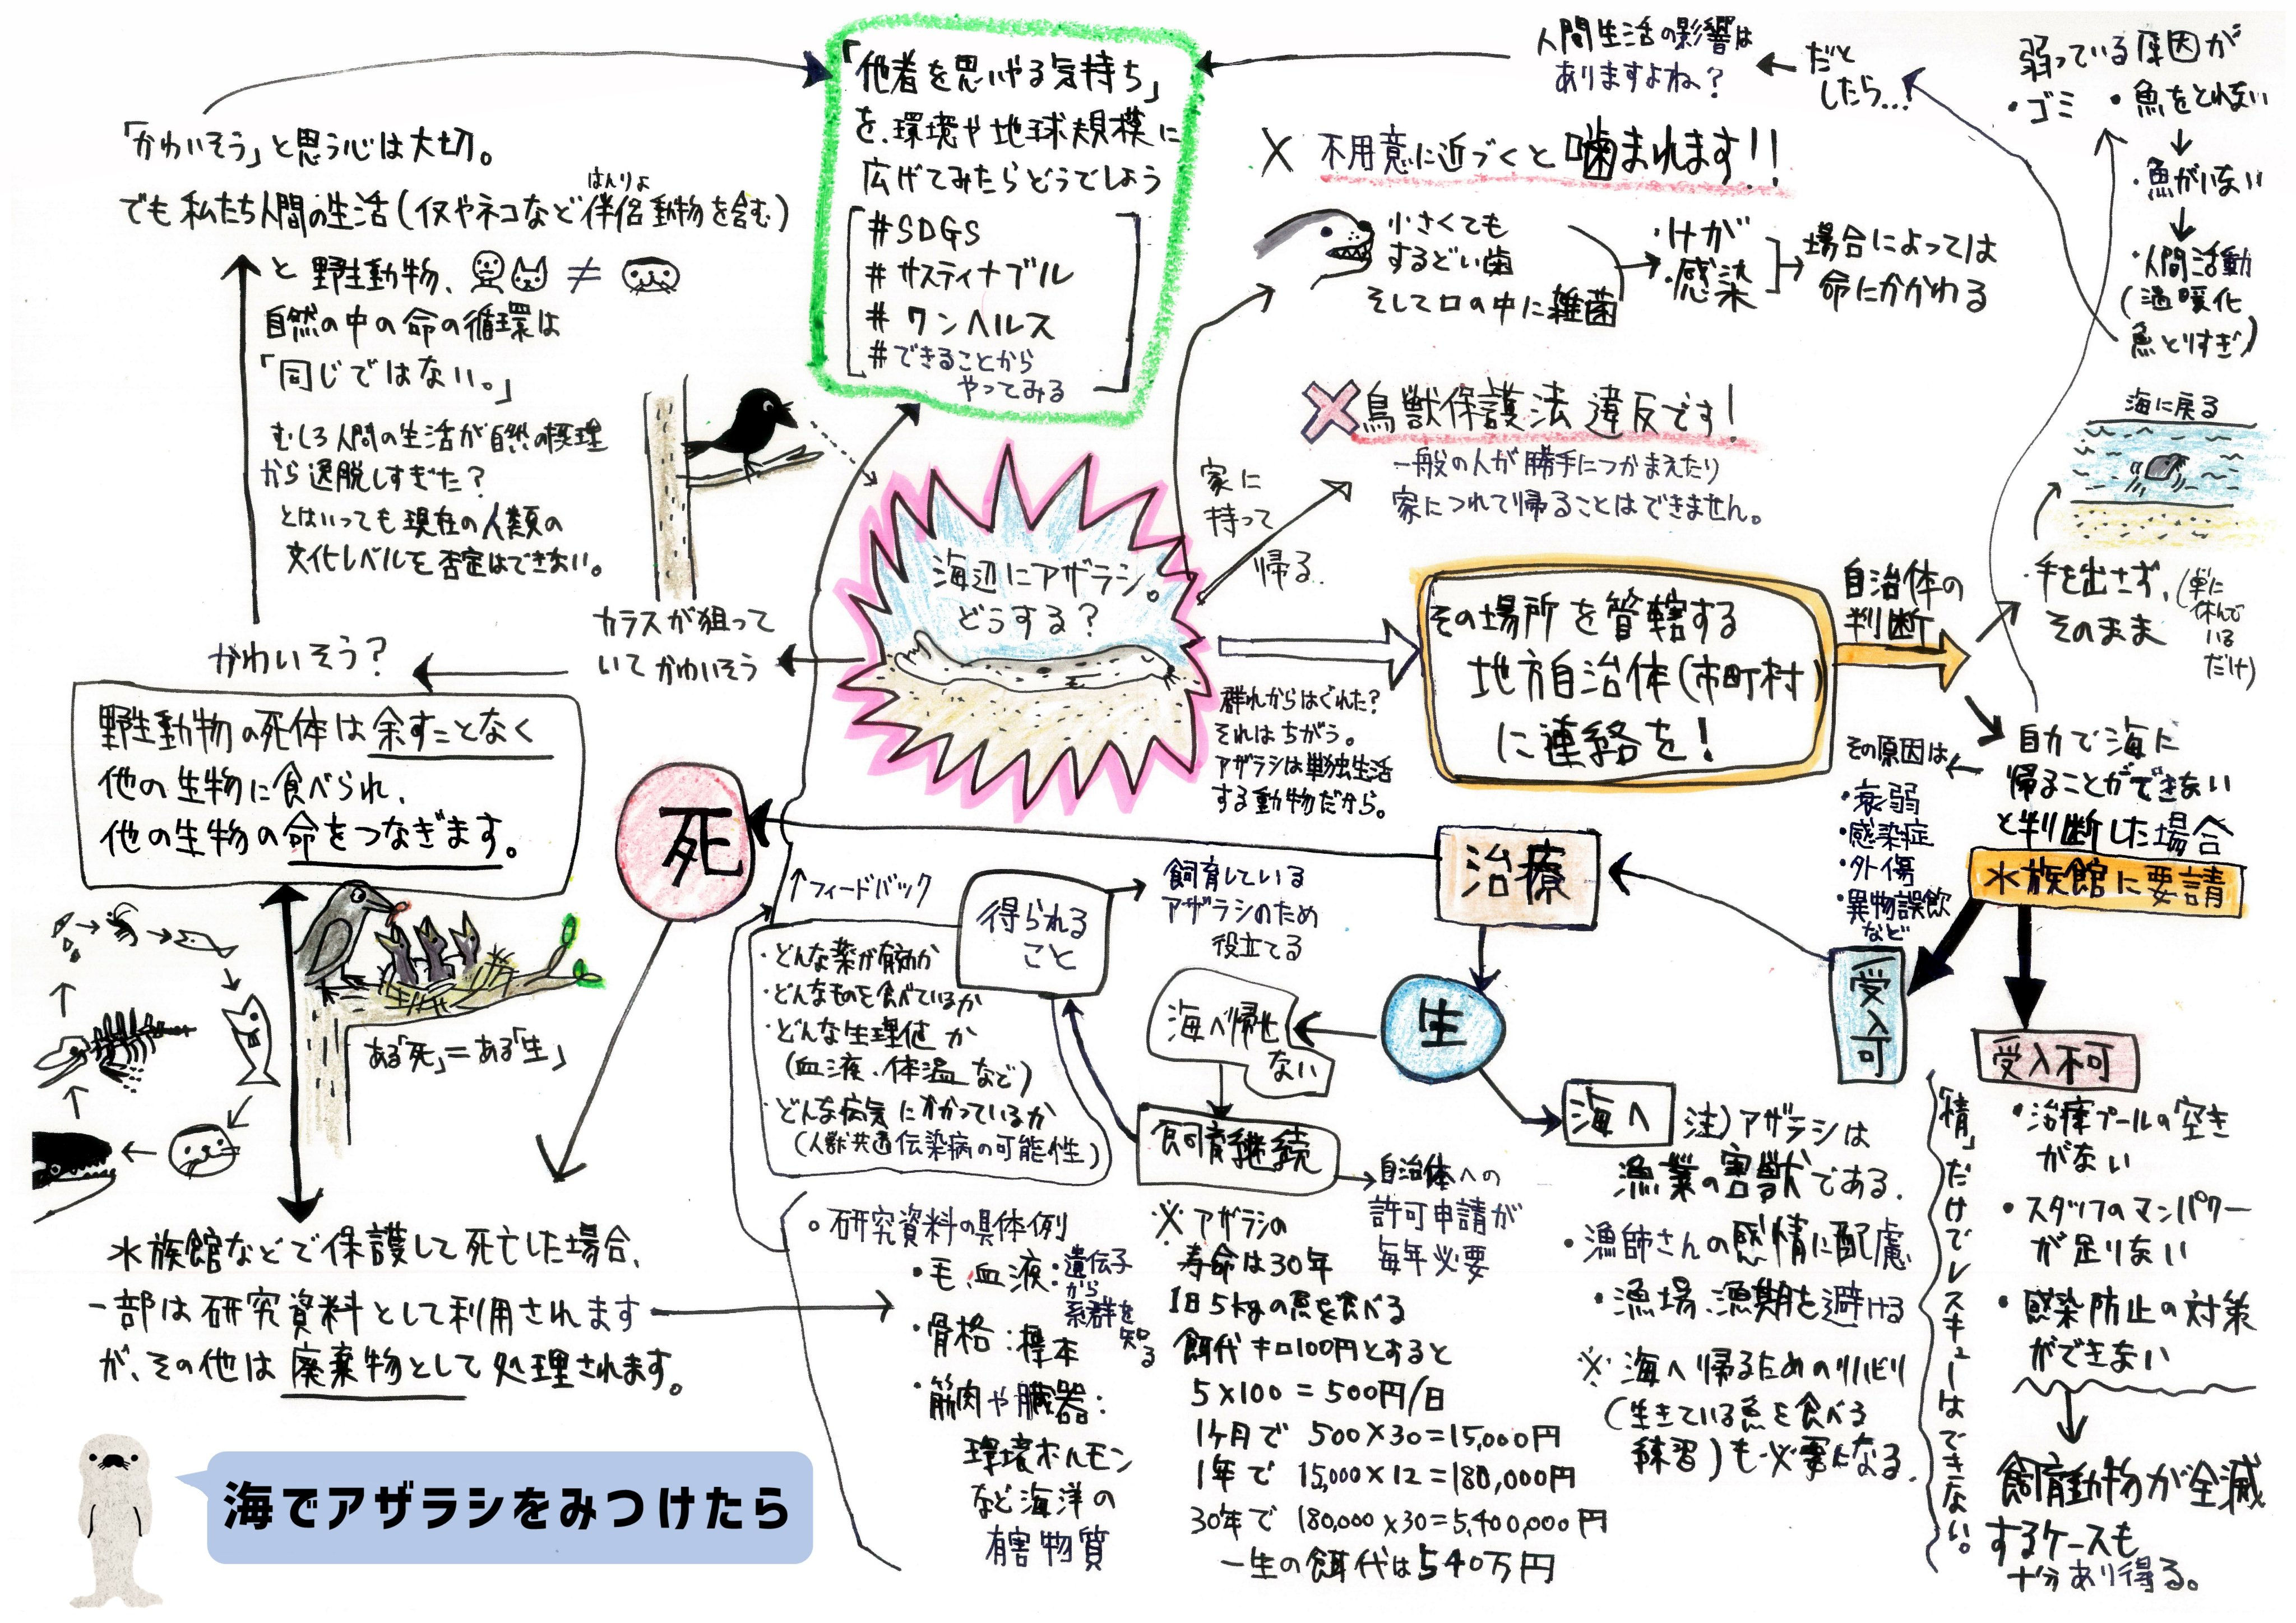 「他者を思いやる気持ち」
を、環境や地球規模に
広げてみたらどうでしょう
#SDGS
#サスティナブル
#ワンヘルス
#できることから
やってみる
「かわいそう」と思う心は大切。
でも私たち人間の生活(イヌやネコなど伴侶動物を含む)
はんりょ
と野生動物、
≠
自然の中の命の循環は
「同じではない。」
むしろ人間の生活が自然の摂理
から逸脱しすぎた?
とはいっても現在の人類の
文化レベルを否定はできない。
かわいそう?
カラスが狙って
いてかわいそう
野生動物の死体は余すことなく
他の生物に食べられ、
他の生物の命をつなぎます。
ある「死」=ある「生」
水族館などで保護して死亡した場合、
一部は研究資料として利用されます
が、その他は廃棄物として処理されます。
海でアザラシをみつけたら
海辺にアザラシ。
どうする?
人間生活の影響は
ありますよね?
だと
したら…
弱っている原因が
・ゴミ
・魚をとれない
・魚がいない
・人間活動
(温暖化
魚とりすぎ)
× 不用意に近づくと噛まれます!!
小さくても
するどい歯
そして口の中に雑菌
・けが
・感染
場合によっては
命にかかわる
家に
持って
帰る…
×鳥獣保護法違反です!
一般の人が勝手につかまえたり
家につれて帰ることはできません。
その場所を管轄する
地方自治体(市町村)
に連絡を!
群れからはぐれた?
それはちがう。
アザラシは単独生活
する動物だから。
自治体の
判断
海に戻る
・手を出さず、
そのまま
(単に
休んで
いる
だけ)
自力で海に
帰ることができない
と判断した場合
その原因は
・衰弱
・感染症
・外傷
・異物誤飲
など
水族館に要請
受入可
受入不可
・治療プールの空き
がない
・スタッフのマンパワー
が足りない
・感染防止の対策
ができない
飼育動物が全滅
するケースも
十分あり得る。
「情」だけでレスキューはできない。
治療
死
生
海へ
注)アザラシは
漁業の害獣である。
・漁師さんの感情に配慮
・漁場、漁期を避ける
※海へ帰るためのリハビリ
(生きている魚を食べる
練習)も必要になる。
海へ帰せ
ない
飼育継続
自治体への
許可申請が
毎年必要
※アザラシの
寿命は30年
1日5kgの魚を食べる
餌代キロ100円とすると
5×100=500円/日
1ヶ月で 500×30=15,000円
1年で 15,000×12=180,000円
30年で 180,000×30=5,400,000円
一生の餌代は540万円
得られる
こと
飼育している
アザラシのため
役立てる
フィードバック
・どんな薬が有効か
・どんなものを食べているか
・どんな生理値か
(血液、体温など)
・どんな病気にかかっているか
(人獣共通伝染病の可能性)
○研究資料の具体例
・毛、血液:遺伝子
から
系群を
知る
・骨格:標本
・筋肉や臓器:
環境ホルモン
など海洋の
有害物質